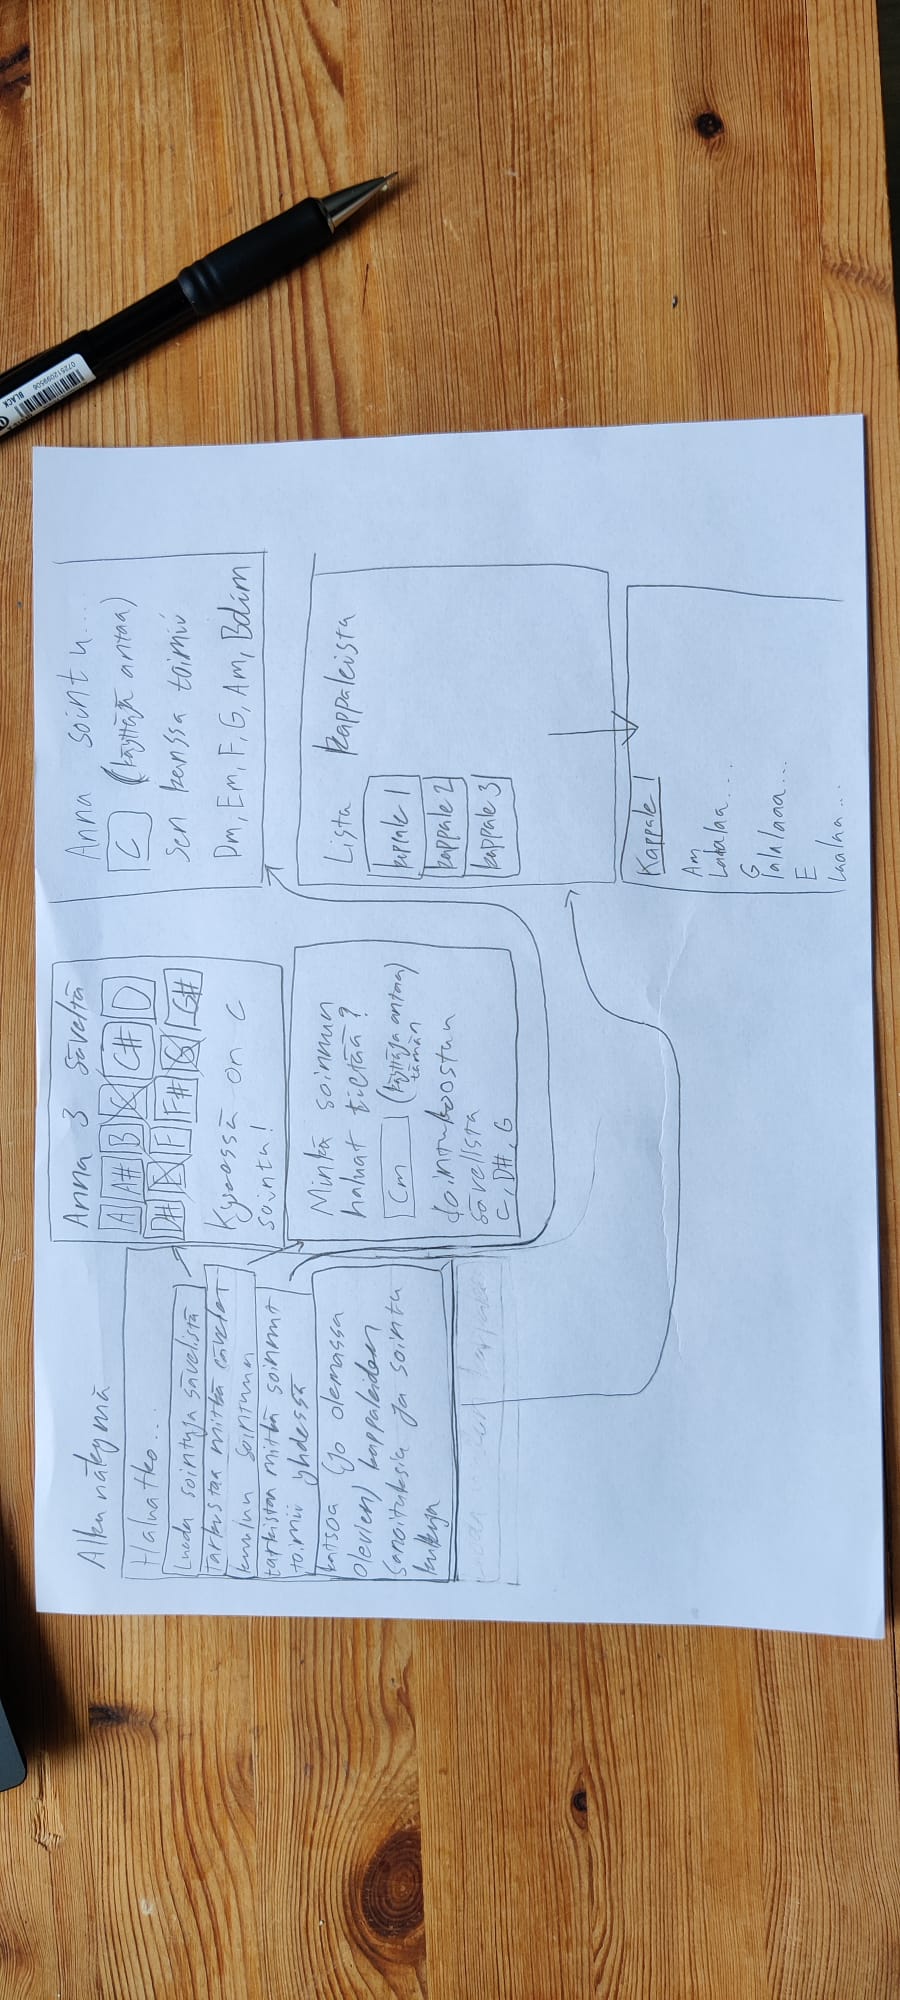 Alku näkymä
Haluatko...
Luoda sointuja sävelistä
tarkistaa mitkä sävelet
kuuluu sointuun
tarkistaa mitkä soinnut
toimii yhdessä
katsoa (jo olemassa
olevien) kappaleiden
sanoituksia ja sointu
kulkuja
Anna 3 säveltä
A A# B C C# D
D# E F F# G G#
Kyseessä on C
sointu!
Minkä soinnun
haluat tietää?
Cm (käyttäjä antaa
tämän
sointu koostuu
sävelistä
C, D#, G
Anna sointu...
C (käyttäjä antaa)
Sen kanssa toimii
Dm, Em, F, G, Am, Bdim
Lista kappaleista
kappale 1
kappale 2
kappale 3
Kappale 1
Am
Lalalaa...
G
lalalaaa...
E
laalaa...
BLACK
072512099506